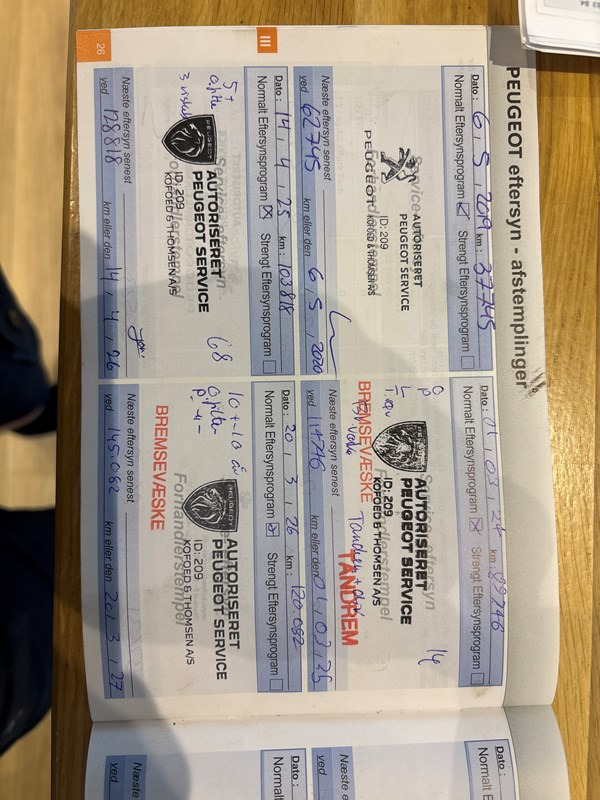 PEUGEOT eftersyn - afstemplinger
Dato: 6, 5, 2019 km: 37745
Normalt Eftersynsprogram Strengt Eftersynsprogram
Service eftersyn
AUTORISERET
PEUGEOT SERVICE
PEUGEOT
ID: 209
KOFOED & THOMSEN A/S
Næste eftersyn senest
ved 62745 km eller den 6, 5, 2020
Dato: 01, 03, 24 km: 89746
Normalt Eftersynsprogram Strengt Eftersynsprogram
O
P
L
14
AUTORISERET
PEUGEOT SERVICE
ID: 209
KOFOED & THOMSEN A/S
BREMSEVÆSKE
TANDREM
Næste eftersyn senest
ved 114746 km eller den 01, 03, 25
III
Dato: 14, 4, 25 km: 103818
Normalt Eftersynsprogram Strengt Eftersynsprogram
5+
Olie
68
PEUGEOT
AUTORISERET
PEUGEOT SERVICE
ID: 209
KOFOED & THOMSEN A/S
Næste eftersyn senest
ved 128818 km eller den 14, 4, 26
Dato: 20, 3, 26 km: 120.082
Normalt Eftersynsprogram Strengt Eftersynsprogram
10+10 år
Forhandlerstempel
PEUGEOT
AUTORISERET
PEUGEOT SERVICE
ID: 209
KOFOED & THOMSEN A/S
BREMSEVÆSKE
Næste eftersyn senest
ved 145.082 km eller den 20, 3, 27
26
Dato:
Normalt E
Næste e
ved
Dato:
Normal
Næste
ved